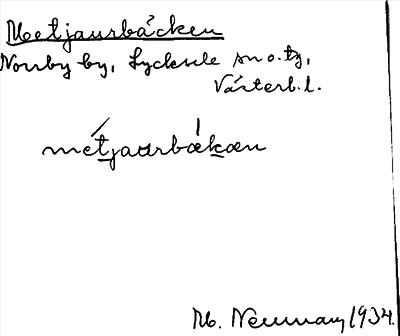 Metjaurbäcken
Norrby by, Lycksele sn o. tg,
Västerb. l.
métjaurbækæn
M. Neuman, 1934.